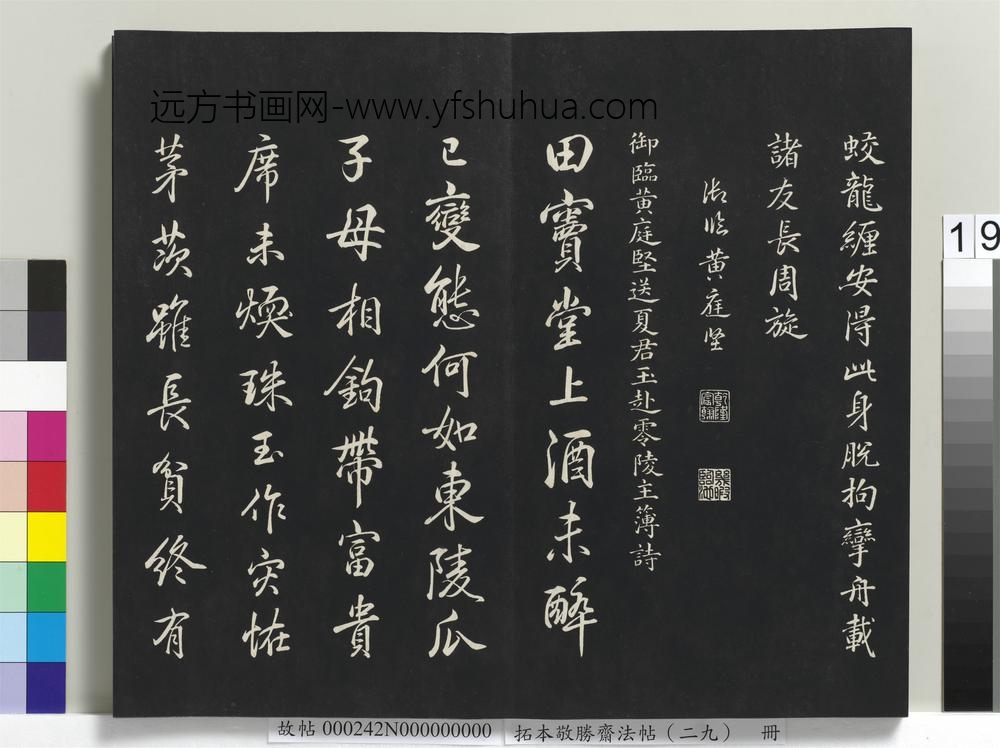 远方书画网-www.yfshuhua.com
蛟龍纏安得此身脫拘攣舟載
諸友長周旋
御臨黄庭坚
御臨黄庭堅送夏君玉赴零陵主簿詩
田竇堂上酒未醉
已變態何如東陵瓜
子母相鈎帶富貴
席未煖珠玉作灾怪
茅茨雖長貧終有
19
故帖 000242N000000000 拓本敬勝齋法帖（二九） 冊